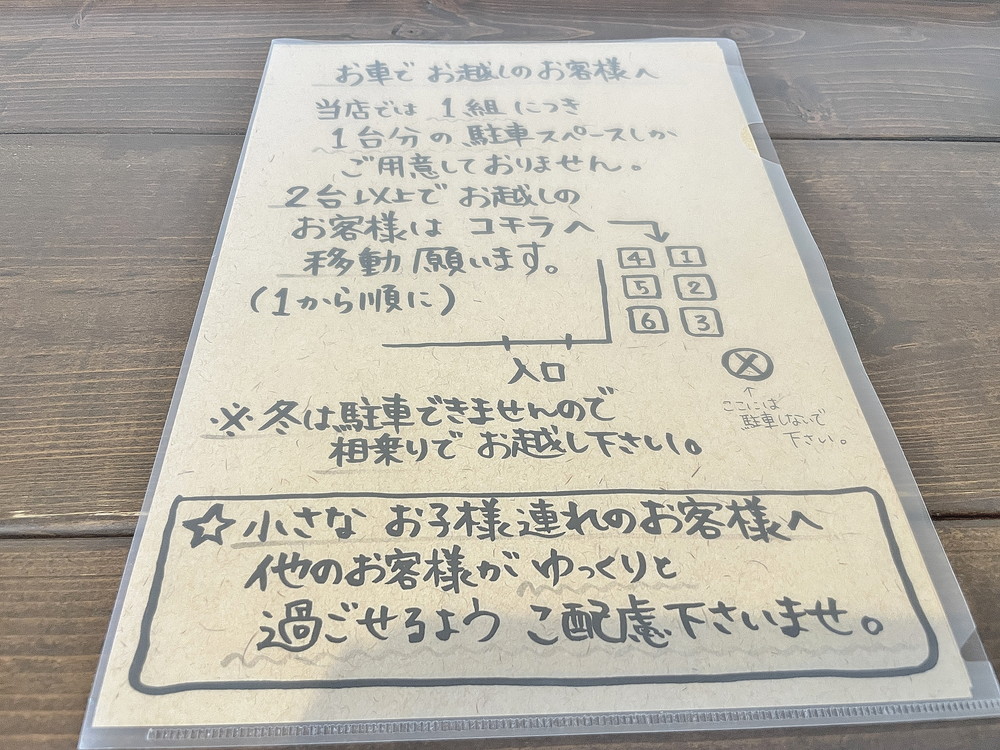 お車でお越しのお客様へ
当店では1組につき
1台分の駐車スペースしか
ご用意しておりません。
2台以上でお越しの
お客様はコチラへ
移動願います。
(1から順に)
4 1
5 2
6 3
入口
×
↑
ここには
駐車しないで
下さい。
※冬は駐車できませんので
相乗りでお越し下さい。
☆小さなお子様連れのお客様へ
他のお客様がゆっくりと
過ごせるようご配慮下さいませ。